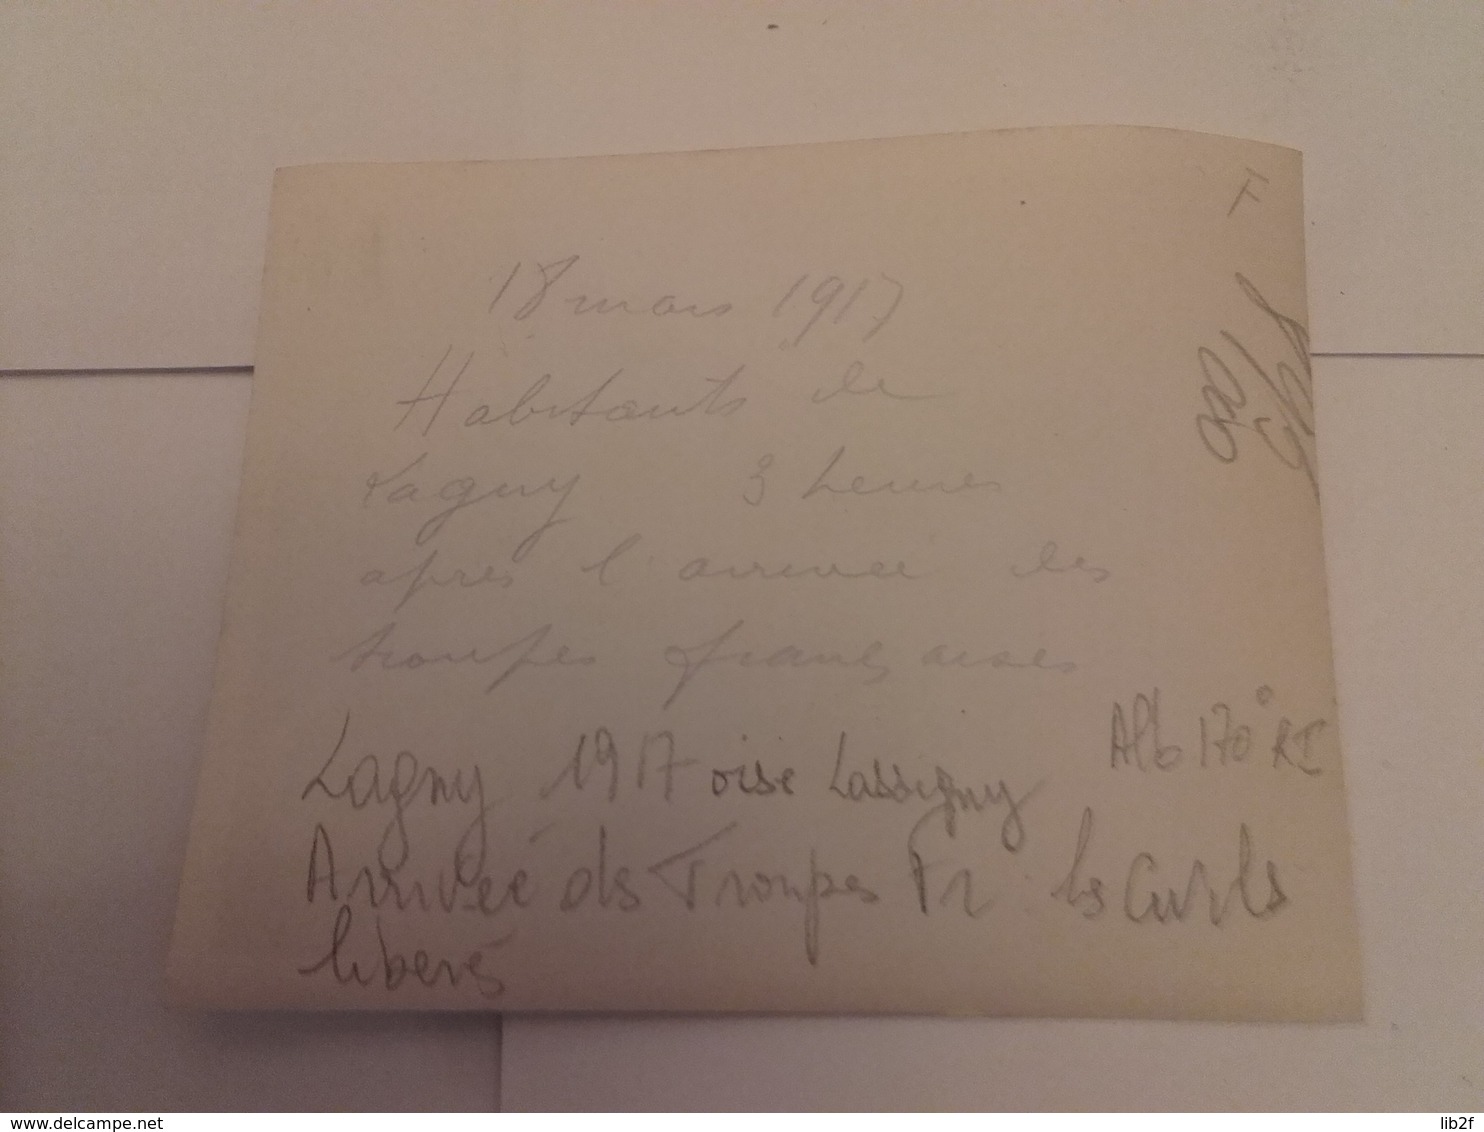 F
18 mars 1917
Habitants de
Lagny 3 heures
après l'arrivée des
troupes françaises
Alb 170° RI
Lagny 1917 oise Lassigny
Arrivée ds Troupes Fr les Civils
libérés
www.delcampe.net
lib2f